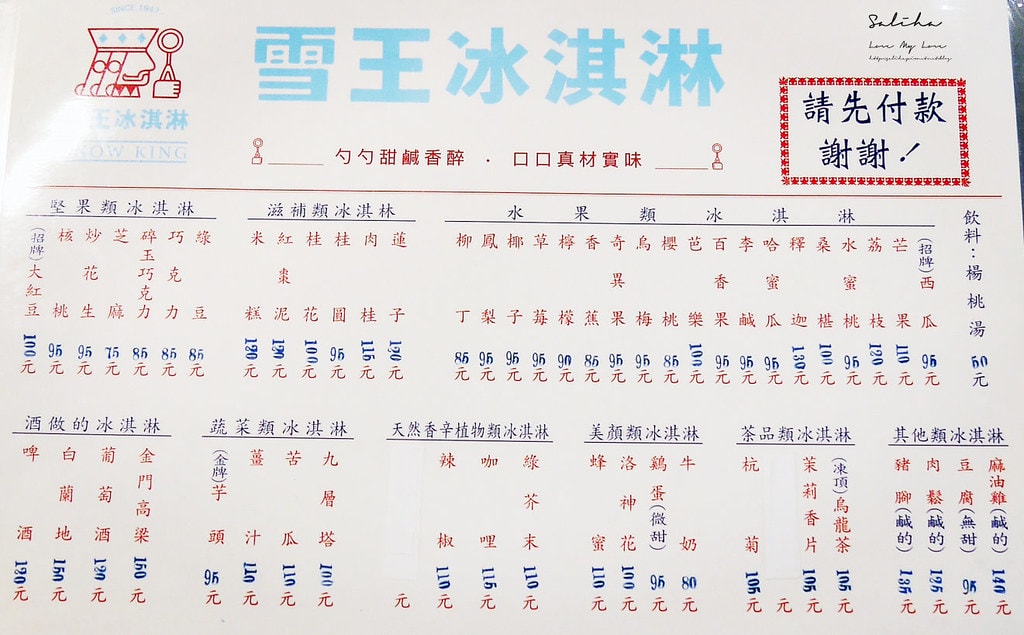 SINCE 1947
王冰淇淋
SNOW KING
雪王冰淇淋
勺勺甜鹹香醉 · 口口真材實味
Saliha
Love My Love
請先付款
謝謝！
堅果類冰淇淋
(招牌)大紅豆 100元
核桃 95元
炒花生 95元
芝麻 75元
碎玉巧克力 85元
巧克力 85元
綠豆 85元
滋補類冰淇林
米糕 120元
紅棗泥 120元
桂花 100元
桂圓 95元
肉桂 115元
蓮子 120元
水果類冰淇淋
柳丁 85元
鳳梨 95元
椰子 95元
草莓 95元
檸檬 90元
香蕉 85元
奇異果 95元
烏梅 95元
櫻桃 85元
芭樂 100元
百香果 95元
李鹹 95元
哈蜜瓜 95元
釋迦 130元
桑椹 100元
水蜜桃 95元
荔枝 120元
芒果 110元
(招牌)西瓜 95元
飲料：楊桃湯 50元
酒做的冰淇淋
啤酒 120元
白蘭地 150元
葡萄酒 120元
金門高梁 150元
蔬菜類冰淇淋
(金牌)芋頭 95元
薑汁 110元
苦瓜 110元
九層塔 100元
天然香辛植物類冰淇淋
元
辣椒 110元
咖哩 115元
綠芥末 110元
美顏類冰淇淋
蜂蜜 110元
洛神花 100元
鷄蛋(微甜) 95元
牛奶 80元
茶品類冰淇淋
杭菊 105元
元
茉莉香片 105元
(凍頂)烏龍茶 105元
其他類冰淇淋
豬腳(鹹的) 135元
肉鬆(鹹的) 125元
豆腐(無甜) 95元
麻油雞(鹹的) 140元